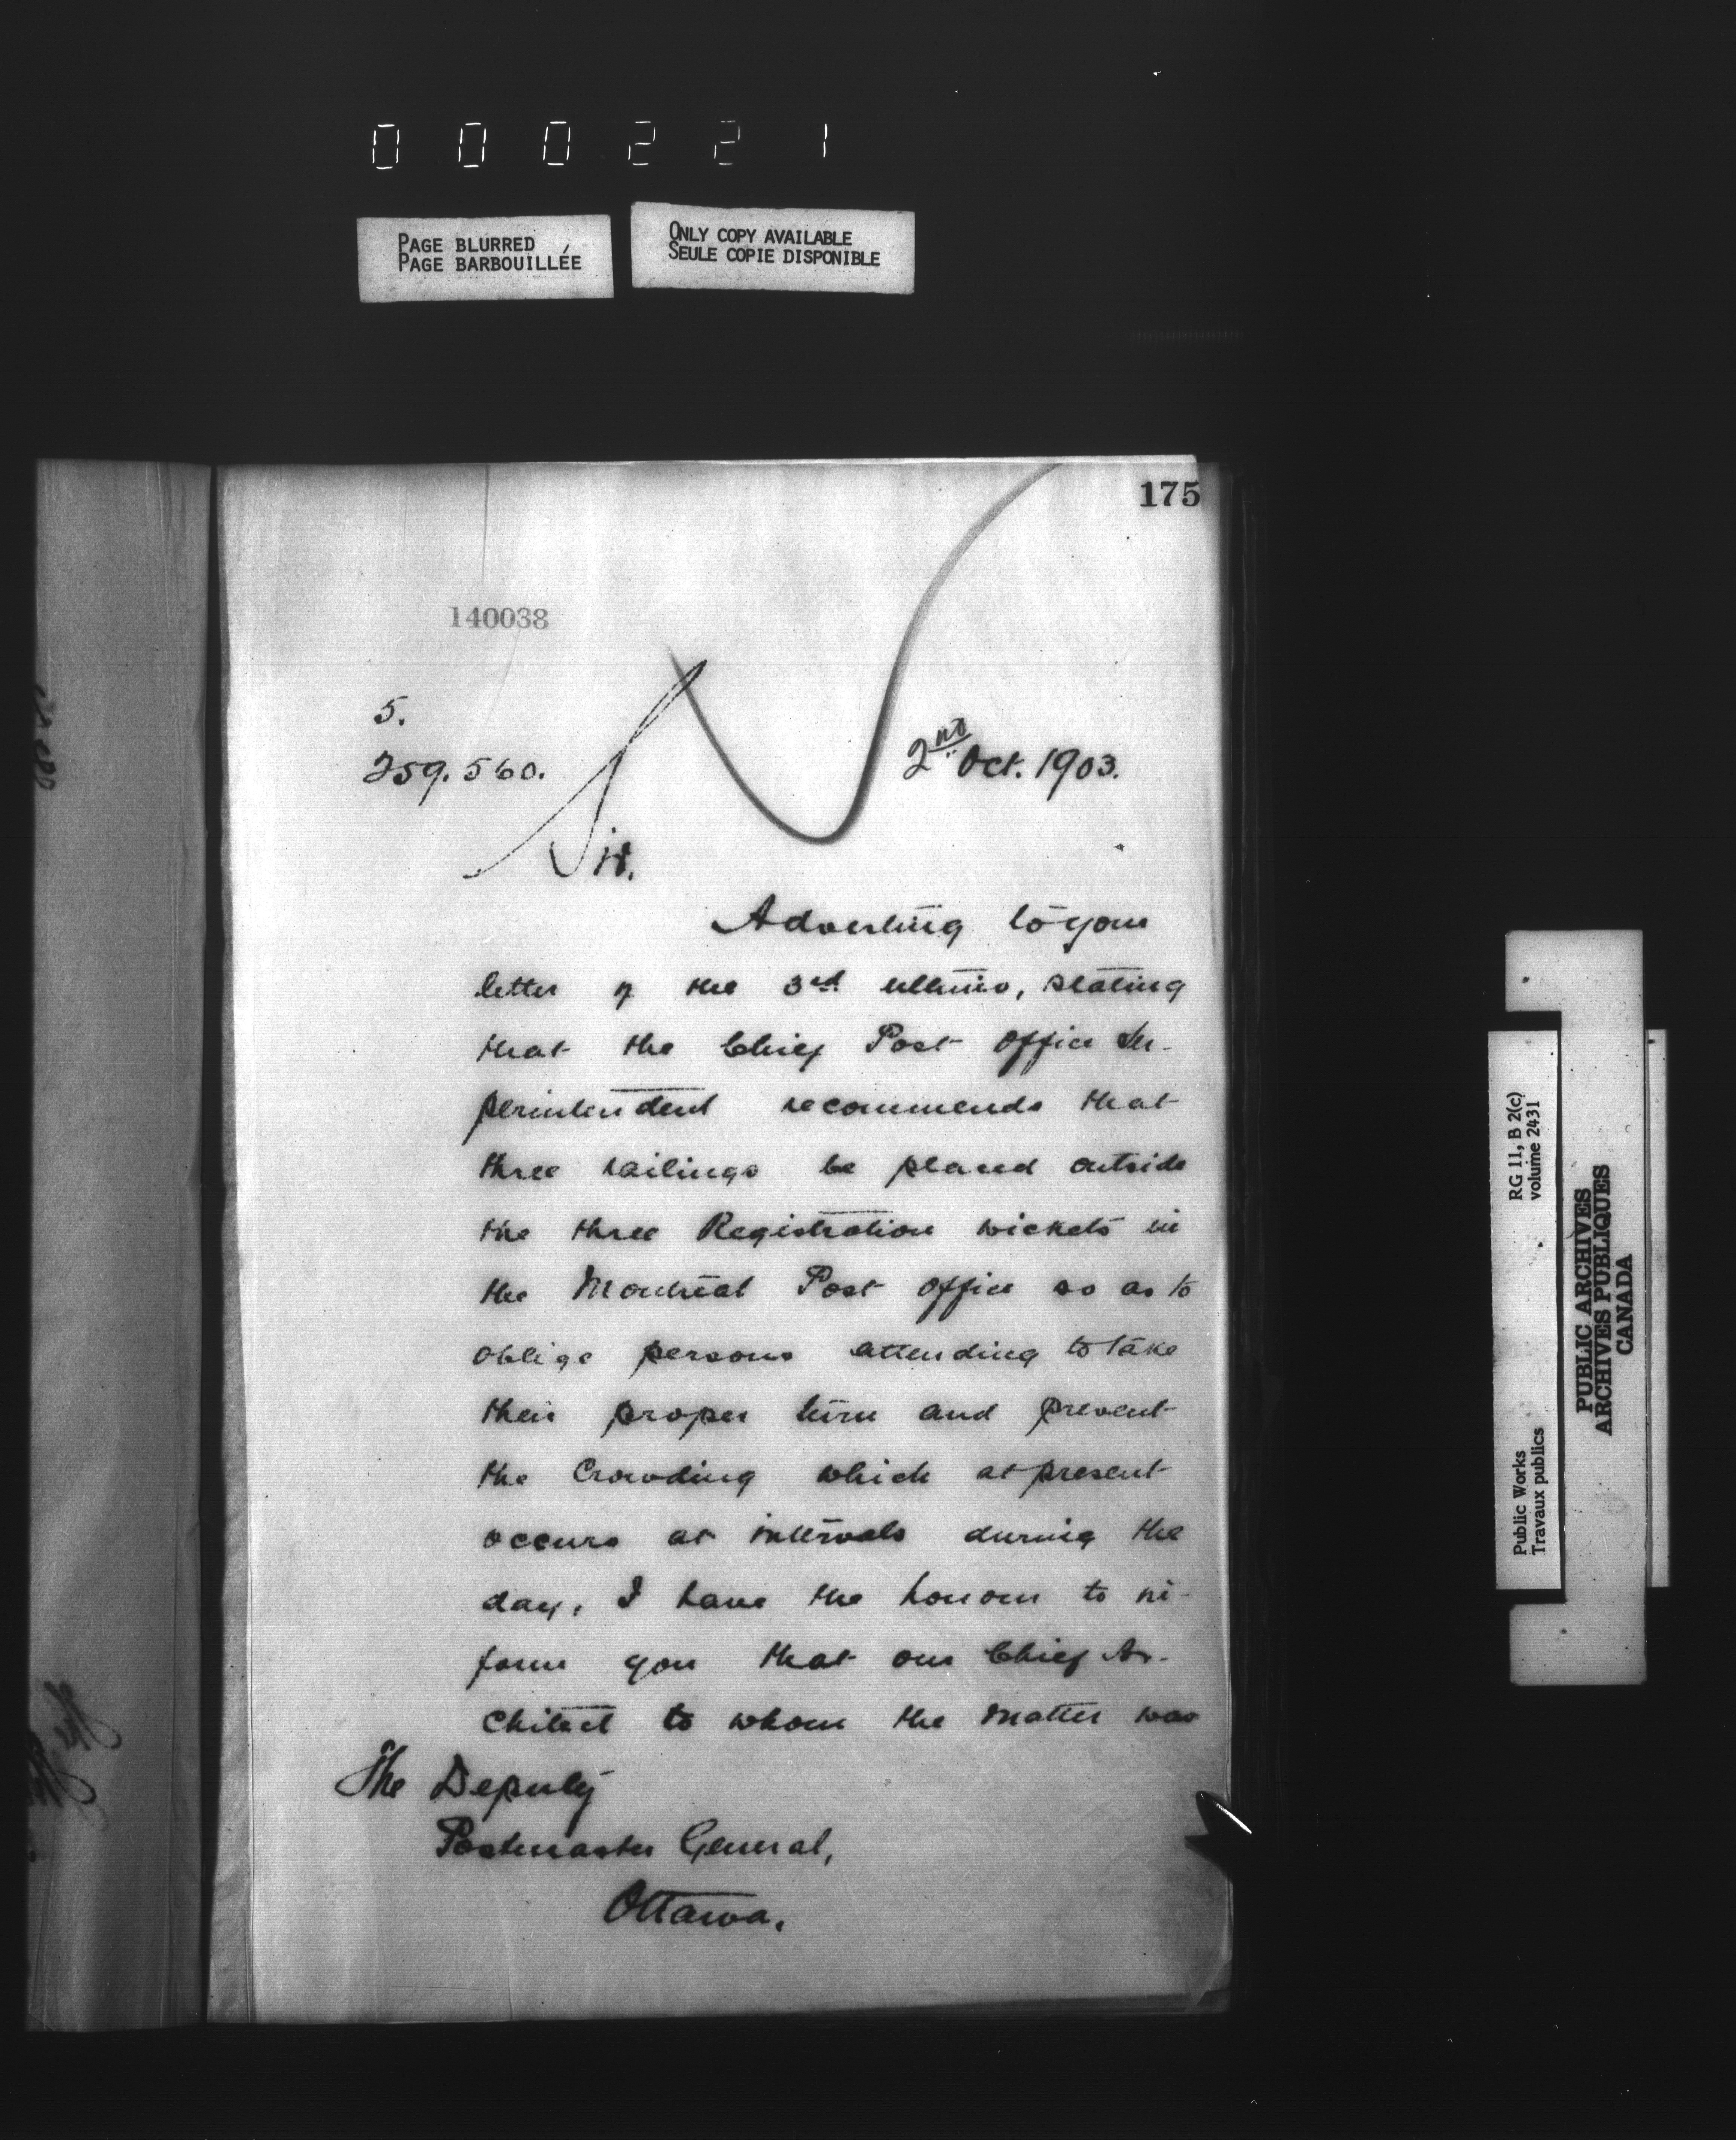 000221
PAGE BLURRED
PAGE BARBOUILLÉE
ONLY COPY AVAILABLE
SEULE COPIE DISPONIBLE
175
140038
5.
259.560.
2nd Oct. 1903.
Sir.
Adverting to your
letter of the 3rd ultimo, stating
that the Chief Post Office Su-
perintendent recommends that
three railings be placed outside
the three Registration wickets in
the Montreal Post Office so as to
oblige persons attending to take
their proper turn and prevent
the Crowding which at present
occurs at intervals during the
day, I have the honour to in-
form you that our Chief Ar-
chitect to whom the matter was
The Deputy
Postmaster General,
Ottawa.
Public Works
Travaux publics
RG 11, B 2(c)
volume 2431
PUBLIC ARCHIVES
ARCHIVES PUBLIQUES
CANADA